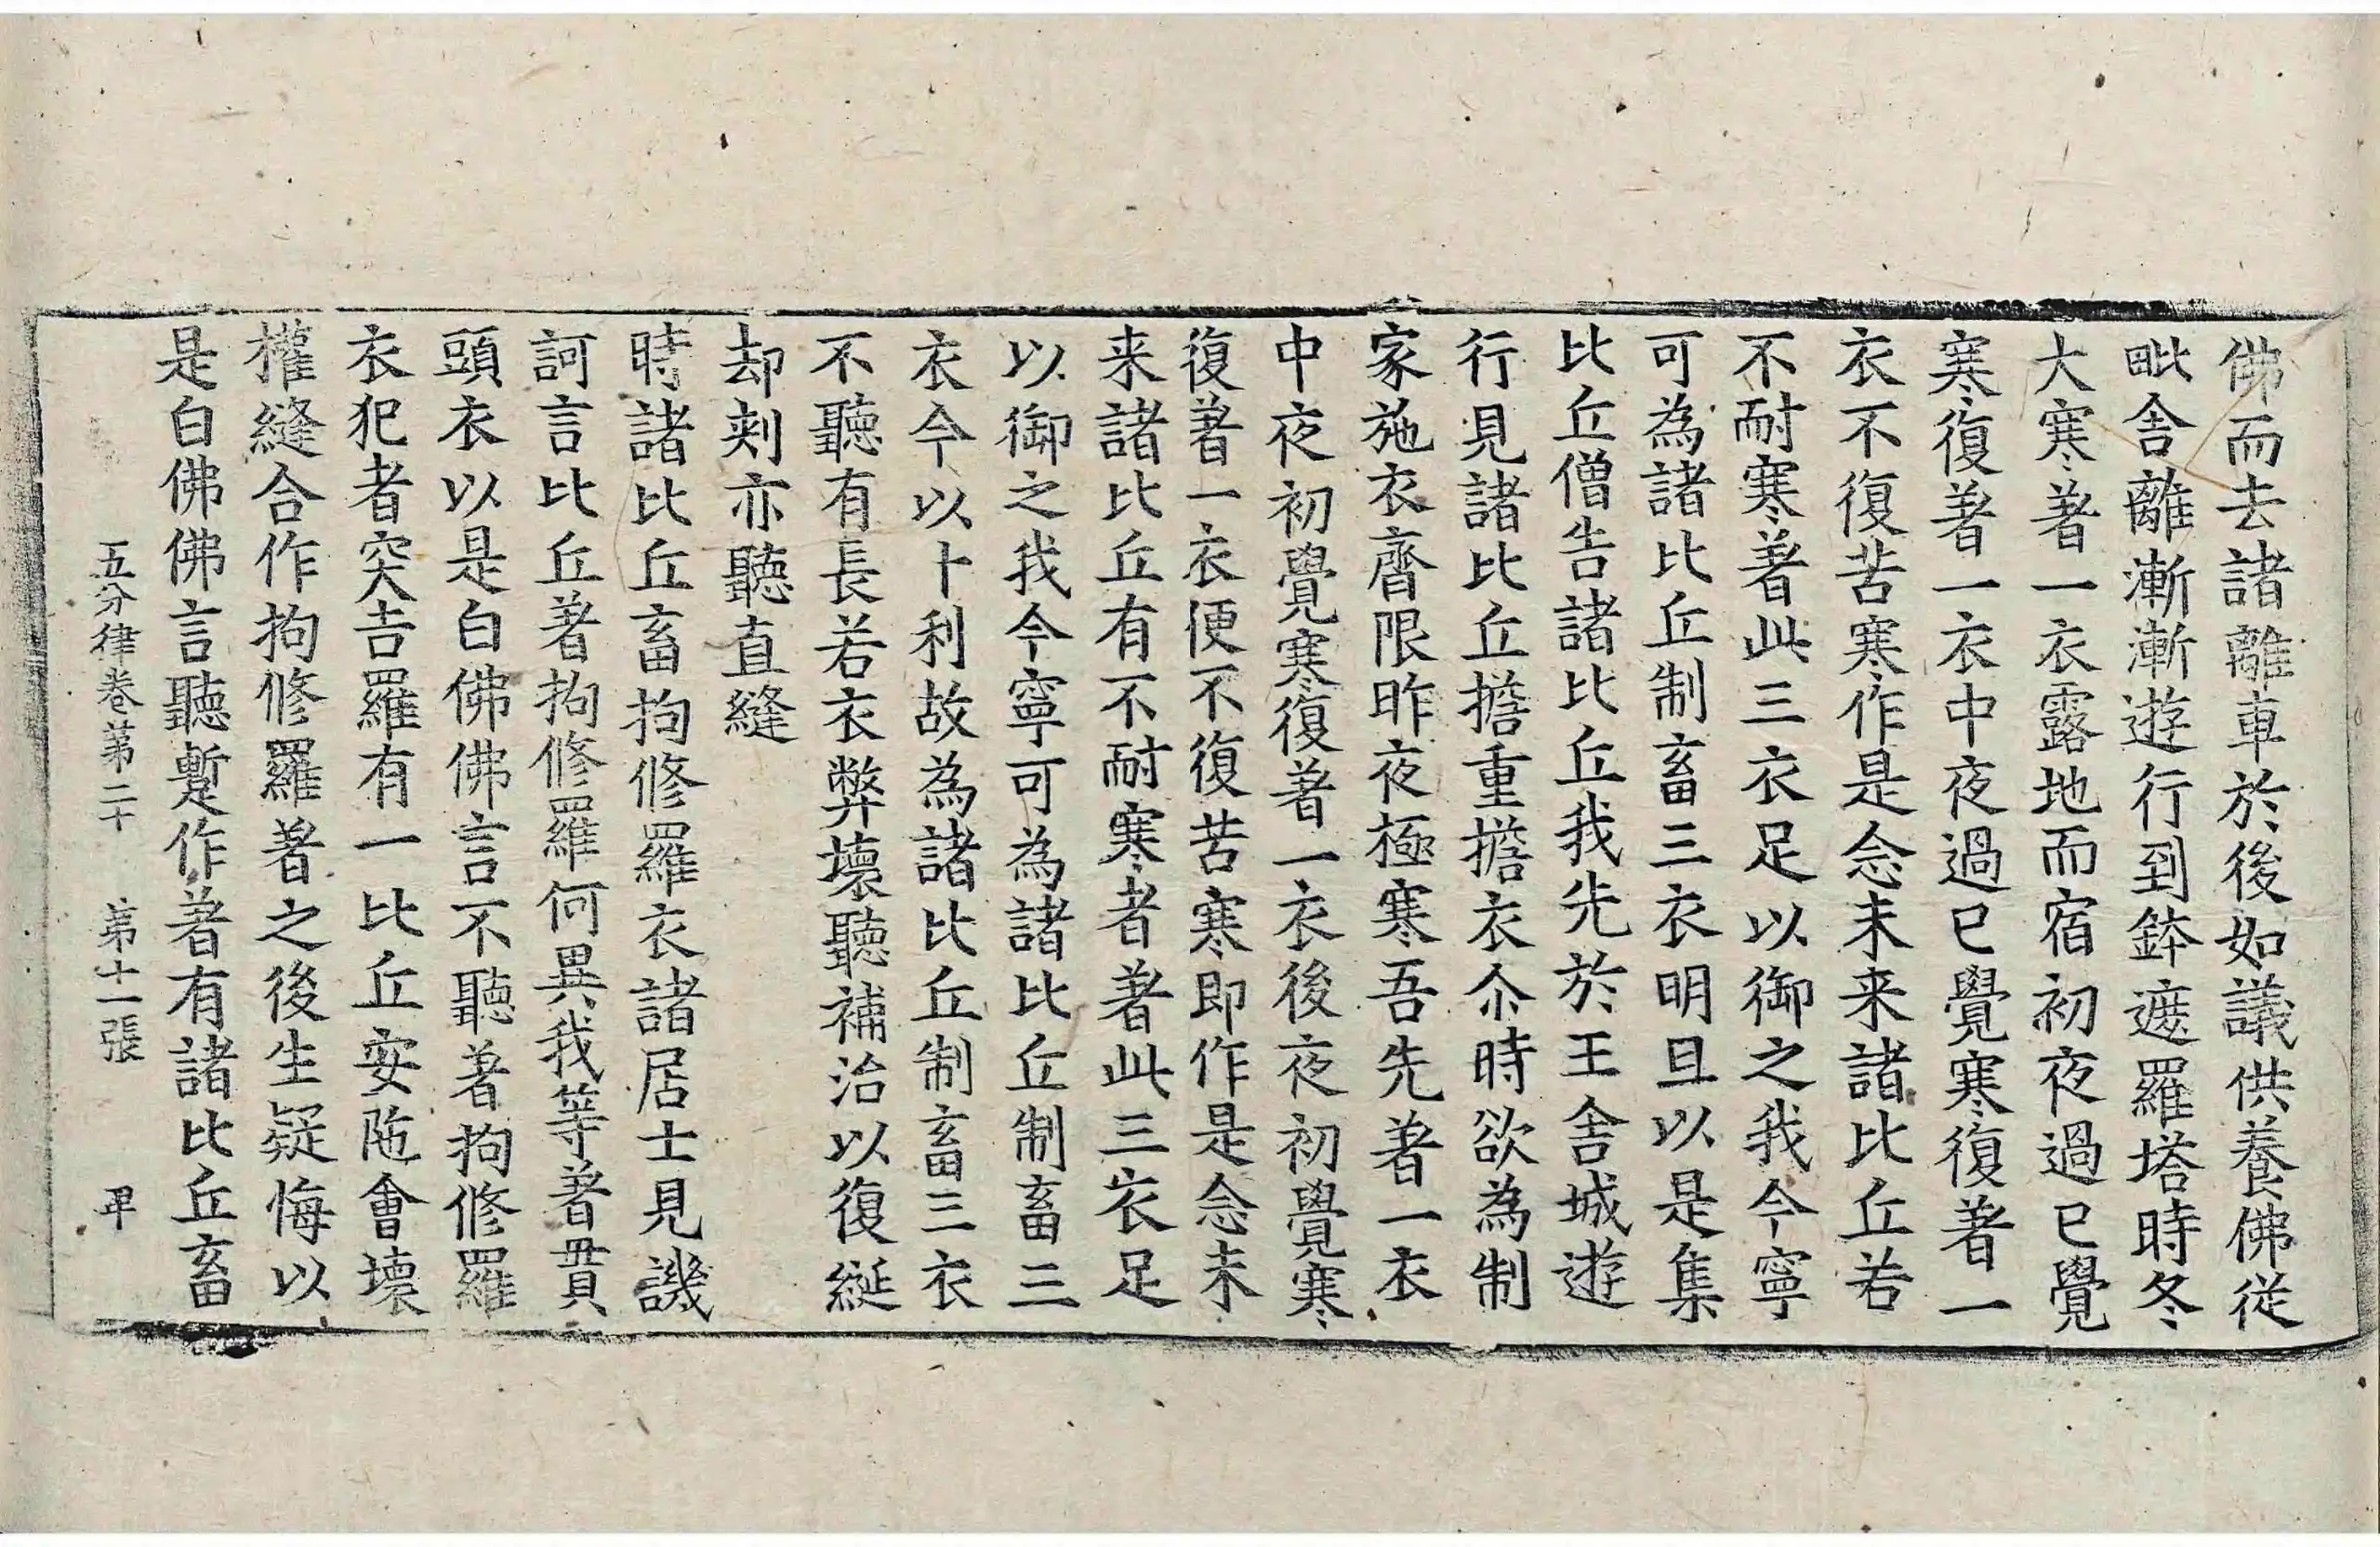 佛而去諸離車於後如議供養佛從
毗舍離漸漸遊行到鉢遮羅塔時冬
大寒著一衣露地而宿初夜過已覺
寒復著一衣中夜過已覺寒復著一
衣不復苦寒作是念未来諸比丘若
不耐寒著此三衣足以御之我今寧
可為諸比丘制畜三衣明旦以是集
比丘僧告諸比丘我先於王舍城遊
行見諸比丘擔重擔衣尒時欲為制
家施衣齊限昨夜極寒吾先著一衣
中夜初覺寒復著一衣後夜初覺寒
復著一衣便不復苦寒即作是念未
来諸比丘有不耐寒者著此三衣足
以御之我今寧可為諸比丘制畜三
衣今以十利故為諸比丘制畜三衣
不聽有長若衣弊壞聽補治以復綖
却刾亦聽直縫
時諸比丘畜拘修羅衣諸居士見譏
訶言比丘著拘修羅何異我等著貫
頭衣以是白佛佛言不聽著拘修羅
衣犯者突吉羅有一比丘安陁會壞
權縫合作拘修羅著之後生疑悔以
是白佛佛言聽蹔作著有諸比丘畜
五分律卷第二十 第十一張 卑